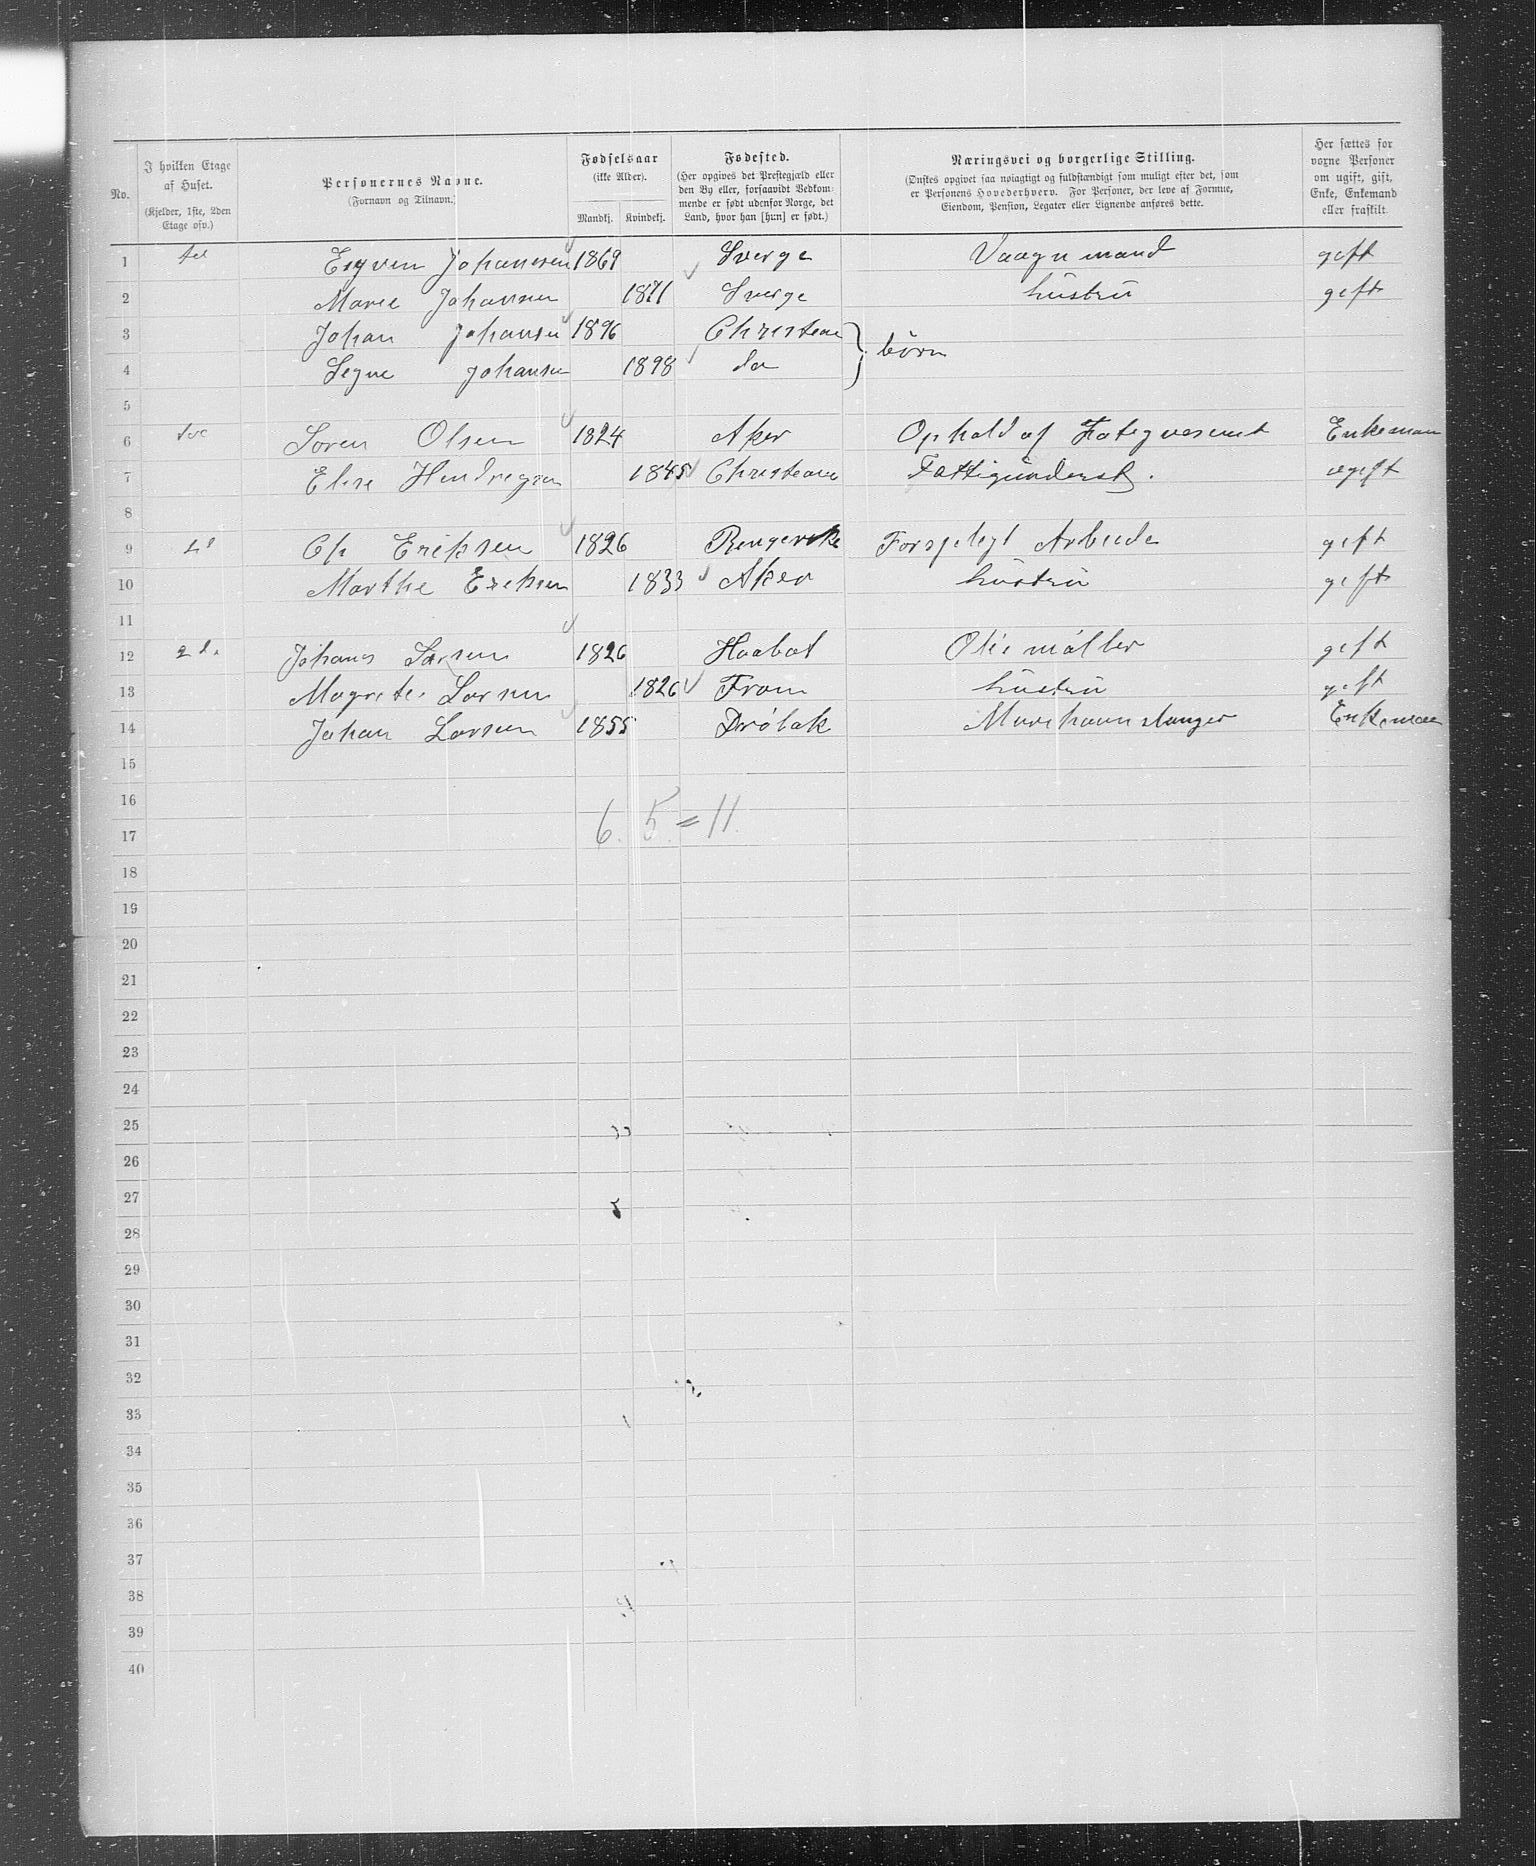 No.
I hvilken Etage af Huset.
(Kjelder, 1ste, 2den Etage osv.)
Personernes Navne.
(Fornavn og Tilnavn.)
Fødselsaar
(ikke Alder).
Mandkj. Kvindekj.
Fødested.
(Her opgives det Prestegjæld eller den By eller, forsaavidt Vedkommende er født udenfor Norge, det Land, hvor han [hun] er født.)
Næringsvei og borgerlige Stilling.
(Ønskes opgivet saa nøiagtigt og fuldstændigt som muligt efter det, som er Personens Hovederhverv. For Personer, der leve af Formue, Eiendom, Pension, Legater eller Lignende anføres dette.
Her sættes for voxne Personer om ugift, gift, Enke, Enkemand eller fraskilt.
1 Johanesen 1869 Sverge Vaagnmand geft
2 Marie Johansen 1871 Sverge hustru geft
3 Johan Johansen 1896 Christean } børn
4 Segne Johansen 1898 do
5
6 Soren Olsen 1824 Aker Ophold af Enkeman
7 Elise 1845 Christeane Fattigunderst. ugift
8
9 Ch Eriksen 1826 Forsplegt geft
10 Marthe Ereksen 1833 Aker hustru geft
11
12 2 Johanes Larsen 1826 Haabøl geft
13 Magrete Larsen 1826 Fron hustru geft
14 Johan Larsen 1855 Drøbak Enkeman
15
16
6. 5. = 11.
17
18
19
20
21
22
23
24
25
26
27
28
29
30
31
32
33
34
35
36
37
38
39
40